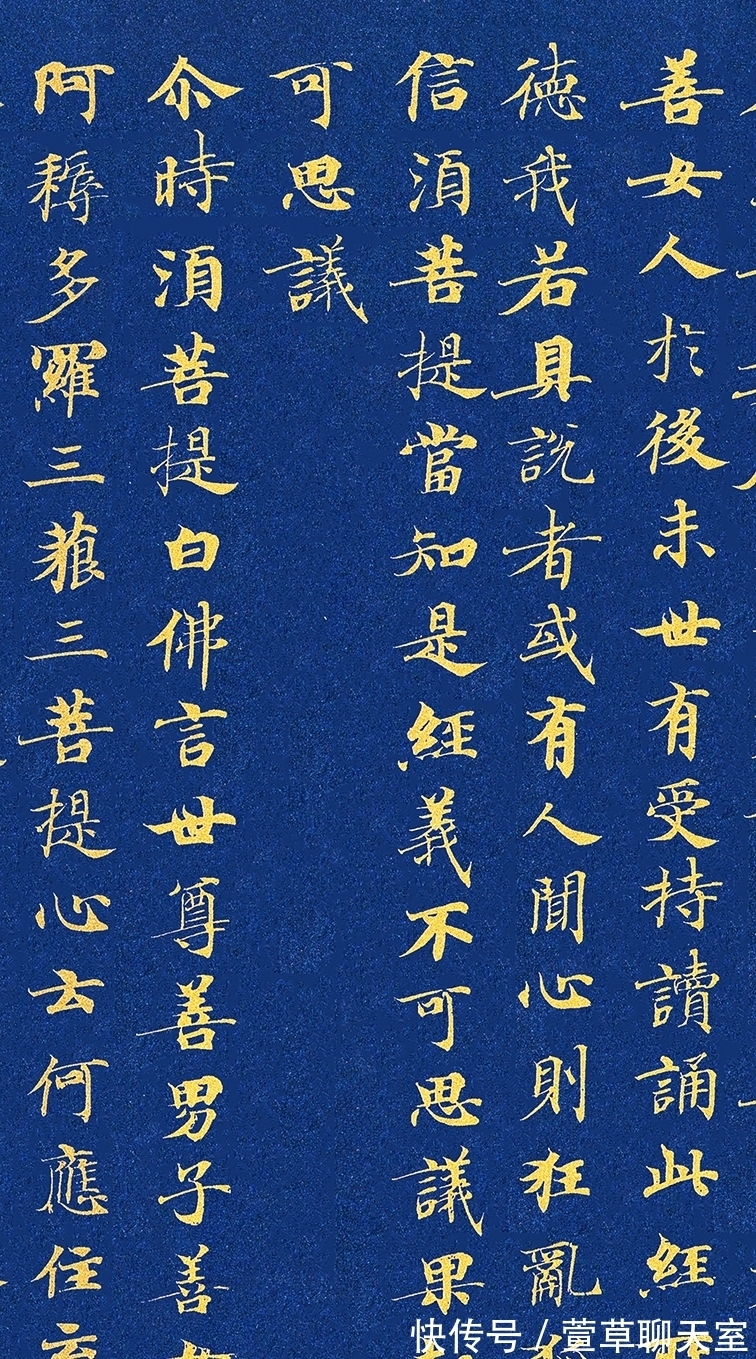 善女人於後末世有受持讀誦此經
德我若具說者或有人聞心則狂亂
信須菩提當知是經義不可思議果
可思議
尒時須菩提白佛言世尊善男子善
阿耨多羅三藐三菩提心云何應住
快传号 / 萱草聊天室